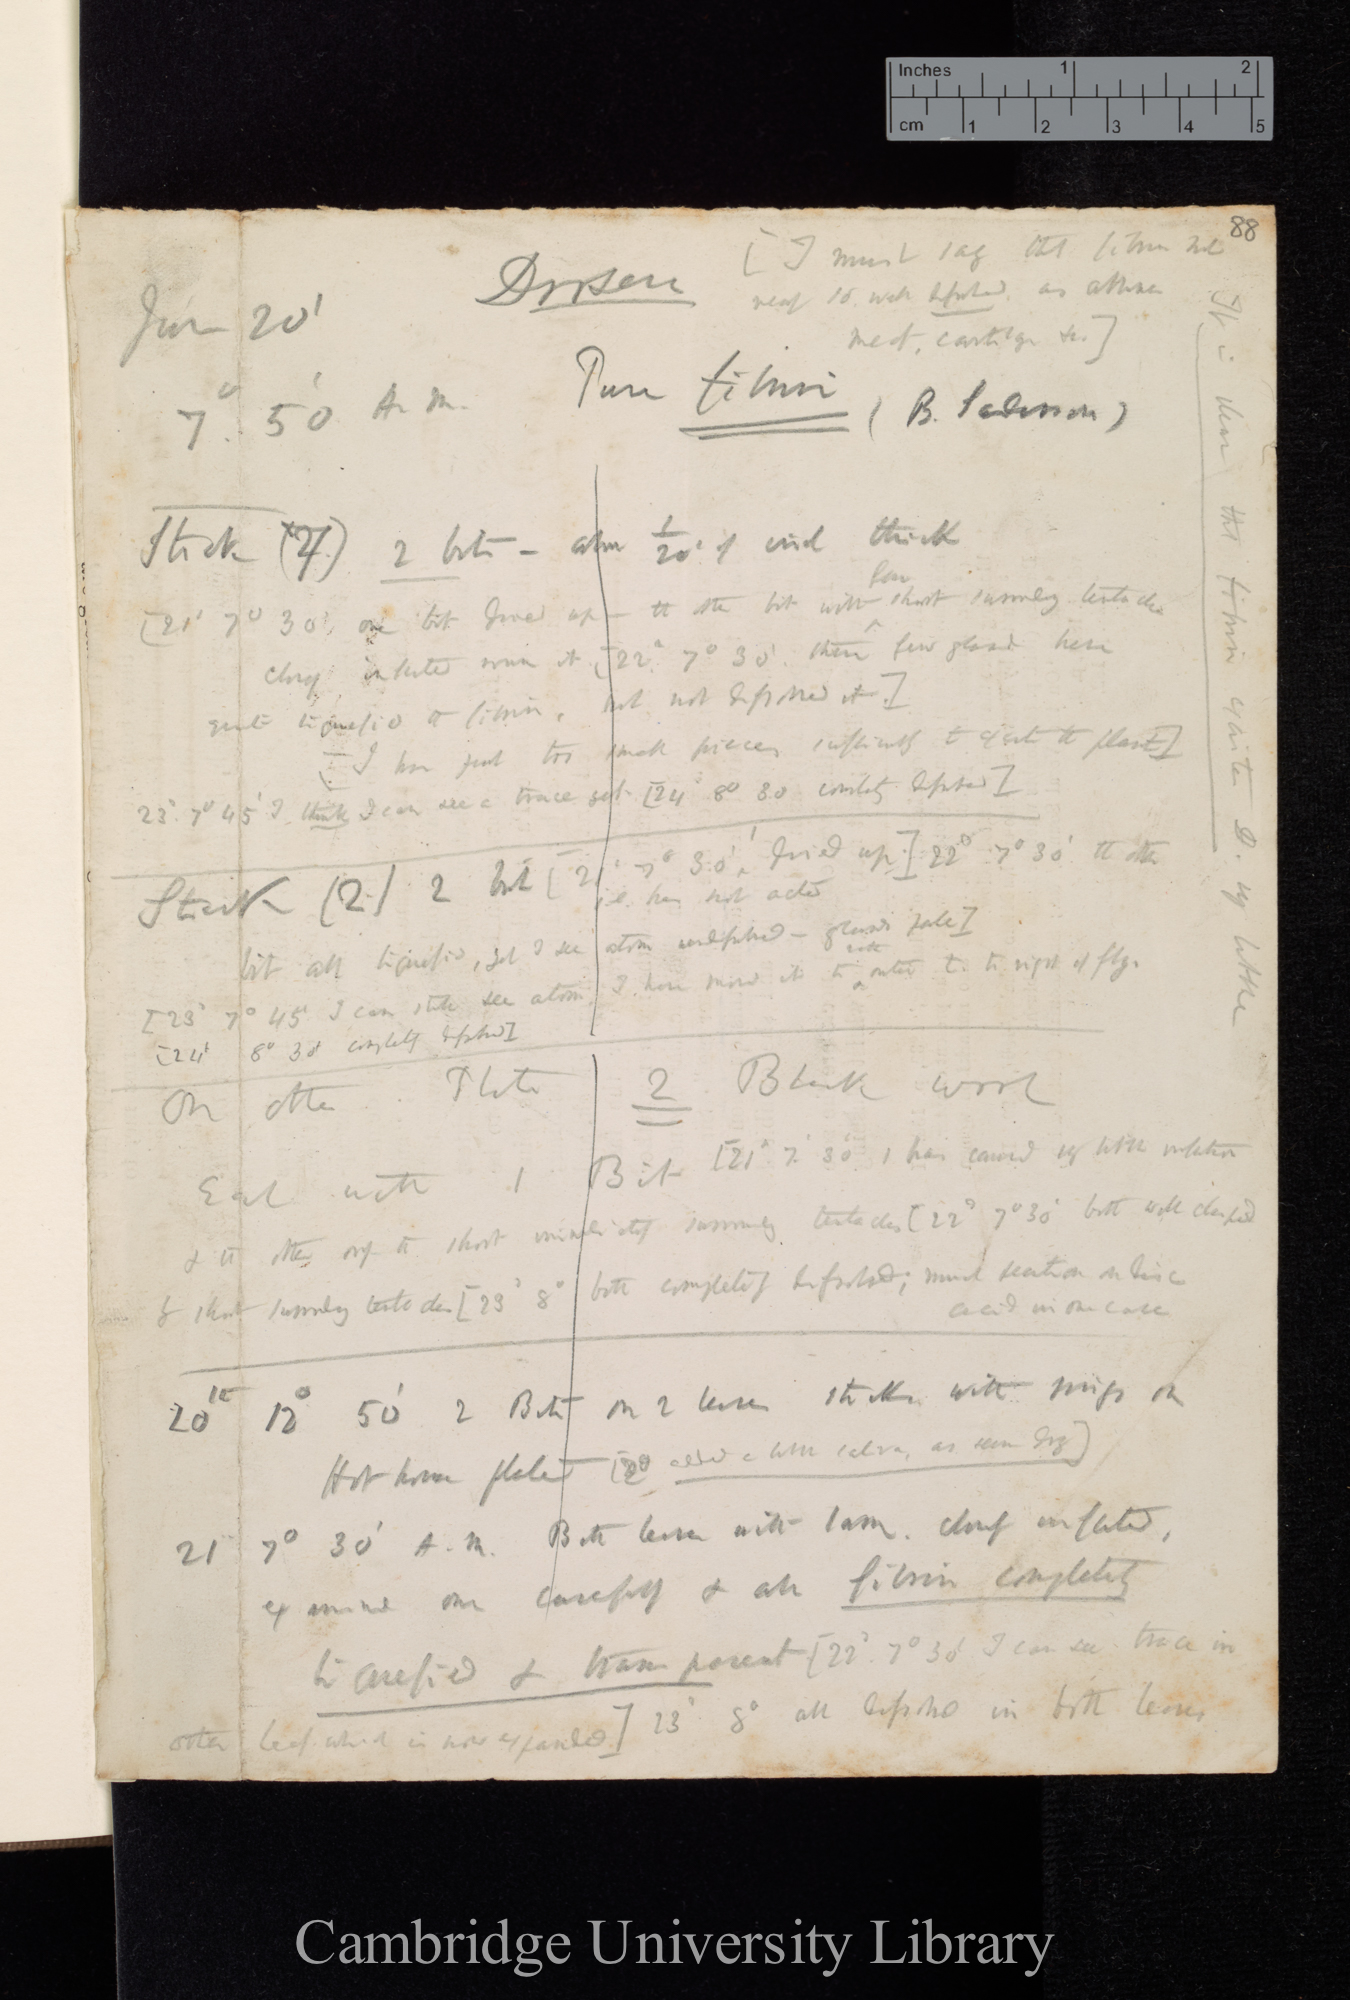 Inches 1 2
cm 1 2 3 4 5
88
Drosera
[I must say that fibrin not
near so well dissolved, as albumen
meat, cartilage &c]
June 20'
7° 50' A.M.
Pure fibrin (B. Sanderson)
It is clear that fibrin excites D. very little
Stick (4) 2 bits – about 1/20 of inch thick
[21' 7° 30', one bit dried up – the other bit with few short surrounding tentacles
closely inflected round it [22' 7° 30' these few glands have
quite liquefied the fibrin, but not dissolved it.]
[I have put too small pieces sufficiently to excite the plant]
23' 7° 45' I think I can see a trace yet [24' 8° 30 completely dissolved]
Stick (2) 2 bits [21' 7° 30', dried up.] 22° 7° 30' the other
i.e. has not acted
bit all liquefied, yet I see atom undissolved – glands pale]
[23' 7° 45' I can still see atom, I have moved it to outer to right of
[24' 8° 30' completely dissolved]
On other Plate 2 Black wool
Each with 1 Bit [21' 7° 30' 1 has caused very little inflection
& the other only the short immediately surrounding tentacles [22' 7° 30' both well clasped
by short surrounding tentacles [23' 8° both completely dissolved; much secretion on disc
acid in one case
20th 12° 50' 2 Bits on 2 leaves sticks with rings on
Hot house plant [ added a little saliva, as seem dry]
21' 7° 30' A.M. Both leaves with lam. closely inflected,
examined one carefully & all fibrin completely
liquefied & transparent [22' 7° 30' I can see trace in
other leaf which is now expanded] 23' 8° all dissolved in both leaves
Cambridge University Library